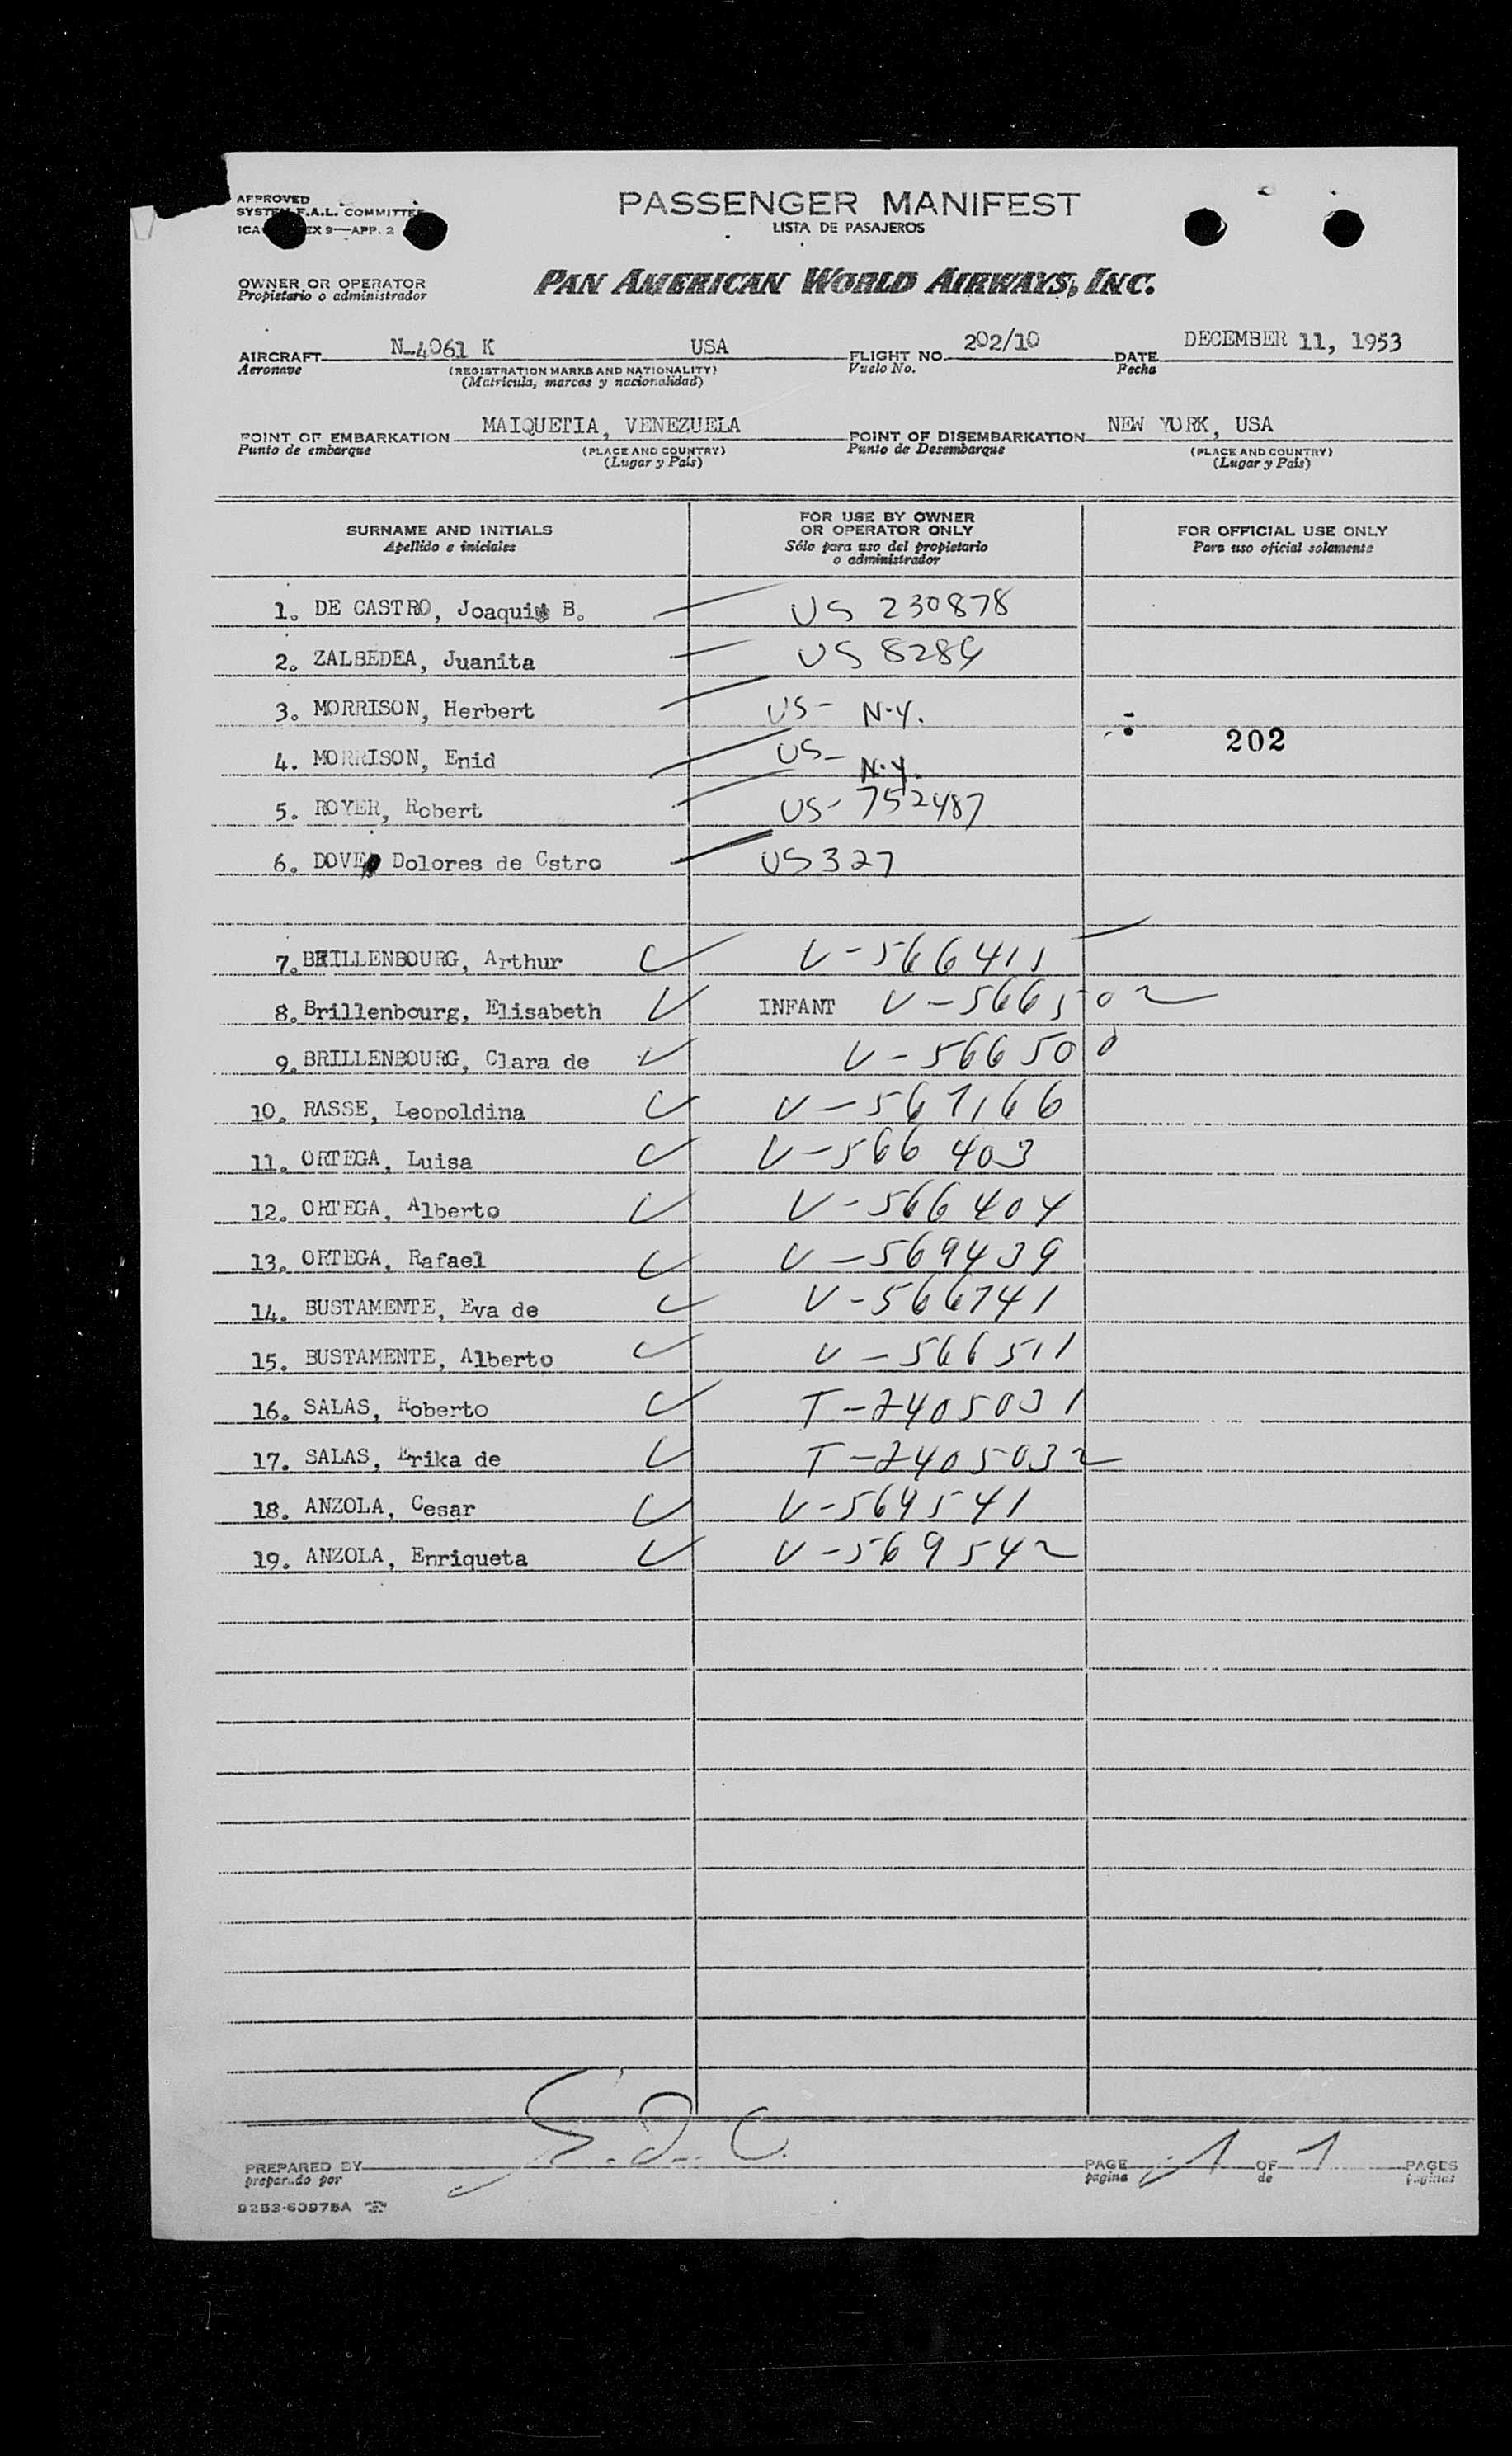 APPROVED
SYSTEM F.A.L. COMMITTEE
ICA EX 9—APP. 2
PASSENGER MANIFEST
LISTA DE PASAJEROS
OWNER OR OPERATOR
Propietario o administrador
PAN AMERICAN WORLD AIRWAYS, INC.
AIRCRAFT N-4061 K USA FLIGHT NO. 202/10 DATE DECEMBER 11, 1953
Aeronave (REGISTRATION MARKS AND NATIONALITY) Vuelo No. Fecha
(Matrícula, marcas y nacionalidad)
POINT OF EMBARKATION MAIQUETIA, VENEZUELA POINT OF DISEMBARKATION NEW YORK, USA
Punto de embarque (PLACE AND COUNTRY) Punto de Desembarque (PLACE AND COUNTRY)
(Lugar y País) (Lugar y País)
SURNAME AND INITIALS FOR USE BY OWNER OR OPERATOR ONLY FOR OFFICIAL USE ONLY
Apellido e iniciales Sólo para uso del propietario o administrador Para uso oficial solamente
1. DE CASTRO, Joaquin B. US 230878
2. ZALBEDEA, Juanita US 8284
3. MORRISON, Herbert US- N.Y.
202
4. MORRISON, Enid US- N.Y.
5. ROYER, Robert US-752487
6. DOVE, Dolores de Cstro US327
7. BRILLENBOURG, Arthur V-566411
8. Brillenbourg, Elisabeth INFANT V-566502
9. BRILLENBOURG, Clara de V-566500
10. RASSE, Leopoldina V-567166
11. ORTEGA, Luisa V-566403
12. ORTEGA, Alberto V-566404
13. ORTEGA, Rafael V-569439
14. BUSTAMENTE, Eva de V-566741
15. BUSTAMENTE, Alberto V-566511
16. SALAS, Roberto T-2405031
17. SALAS, Erika de T-2405032
18. ANZOLA, Cesar V-569541
19. ANZOLA, Enriqueta V-569542
PREPARED BY PAGE 1 OF 1 PAGES
preparado por pagina de paginas
9253-60975A